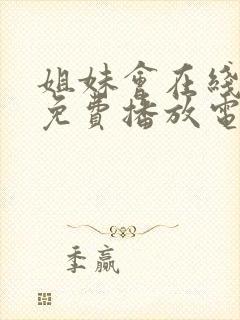 姐妹會在綫
免費播放電
季贏